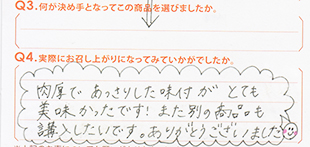 Q3.何が決め手となってこの商品を選びましたか。
Q4.実際にお召し上がりになってみていかがでしたか。
肉厚で あっさりした味付が とても
美味かったです! また別の商品も
購入したいです。ありがとうございました